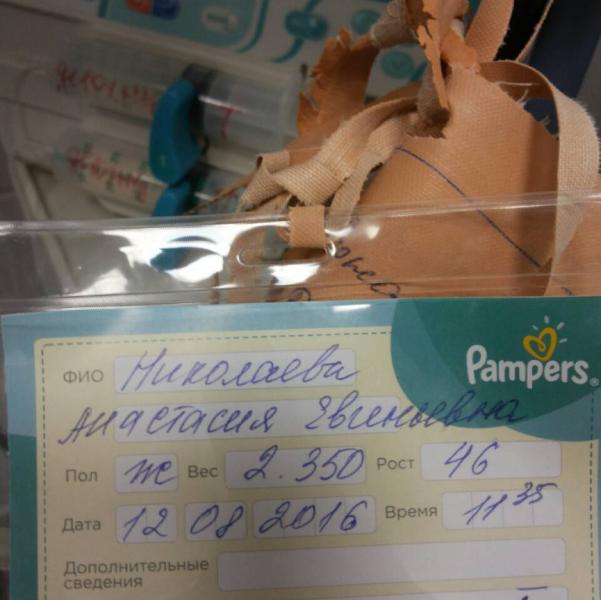 Pampers
ФИО Николаева
Анастасия Евгеньевна
Пол ж Вес 2.350 Рост 46
Дата 12 08 2016 Время 11 35
Дополнительные
сведения